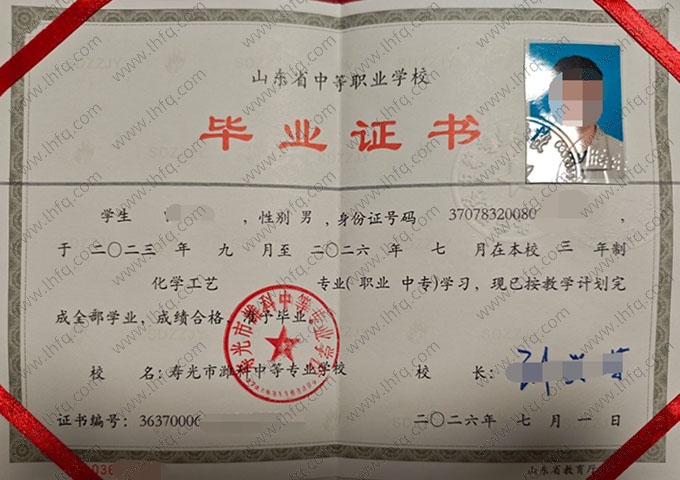 山东省中等职业学校
毕业证书
学生 ,性别 男 ,身份证号码 37078320080 ,
于 二〇二三 年 九 月至 二〇二六 年 七 月在本校 三 年制
化学工艺 专业( 职业 中专)学习，现已按教学计划完
成全部学业，成绩合格，准予毕业。
校 名：寿光市潍科中等专业学校 校 长：
证书编号： 36370006 二〇二六年 七 月 一 日
036 山东省教育厅
www.lhfq.com